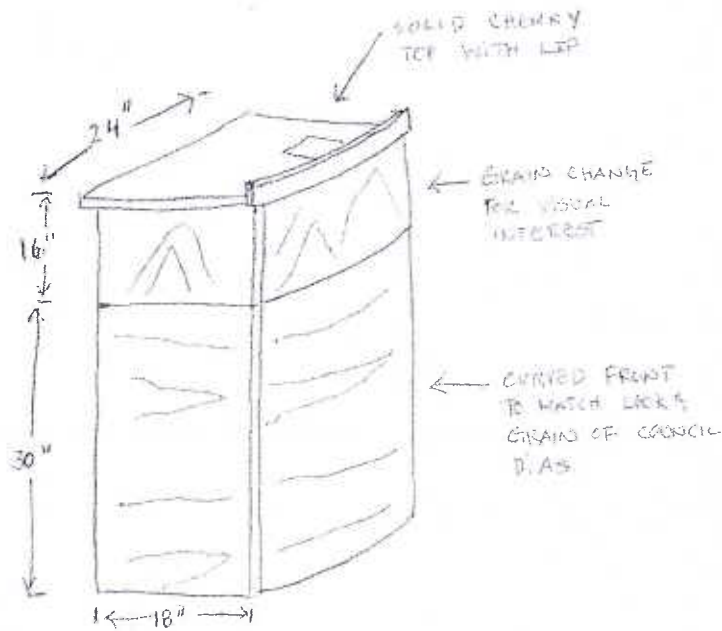 SOLID CHERRY
TOP WITH LIP
24"
GRAIN CHANGE
FOR VISUAL
INTEREST
16"
CURVED FRONT
TO MATCH LOOK &
GRAIN OF COUNCIL
DIAS
30"
18"